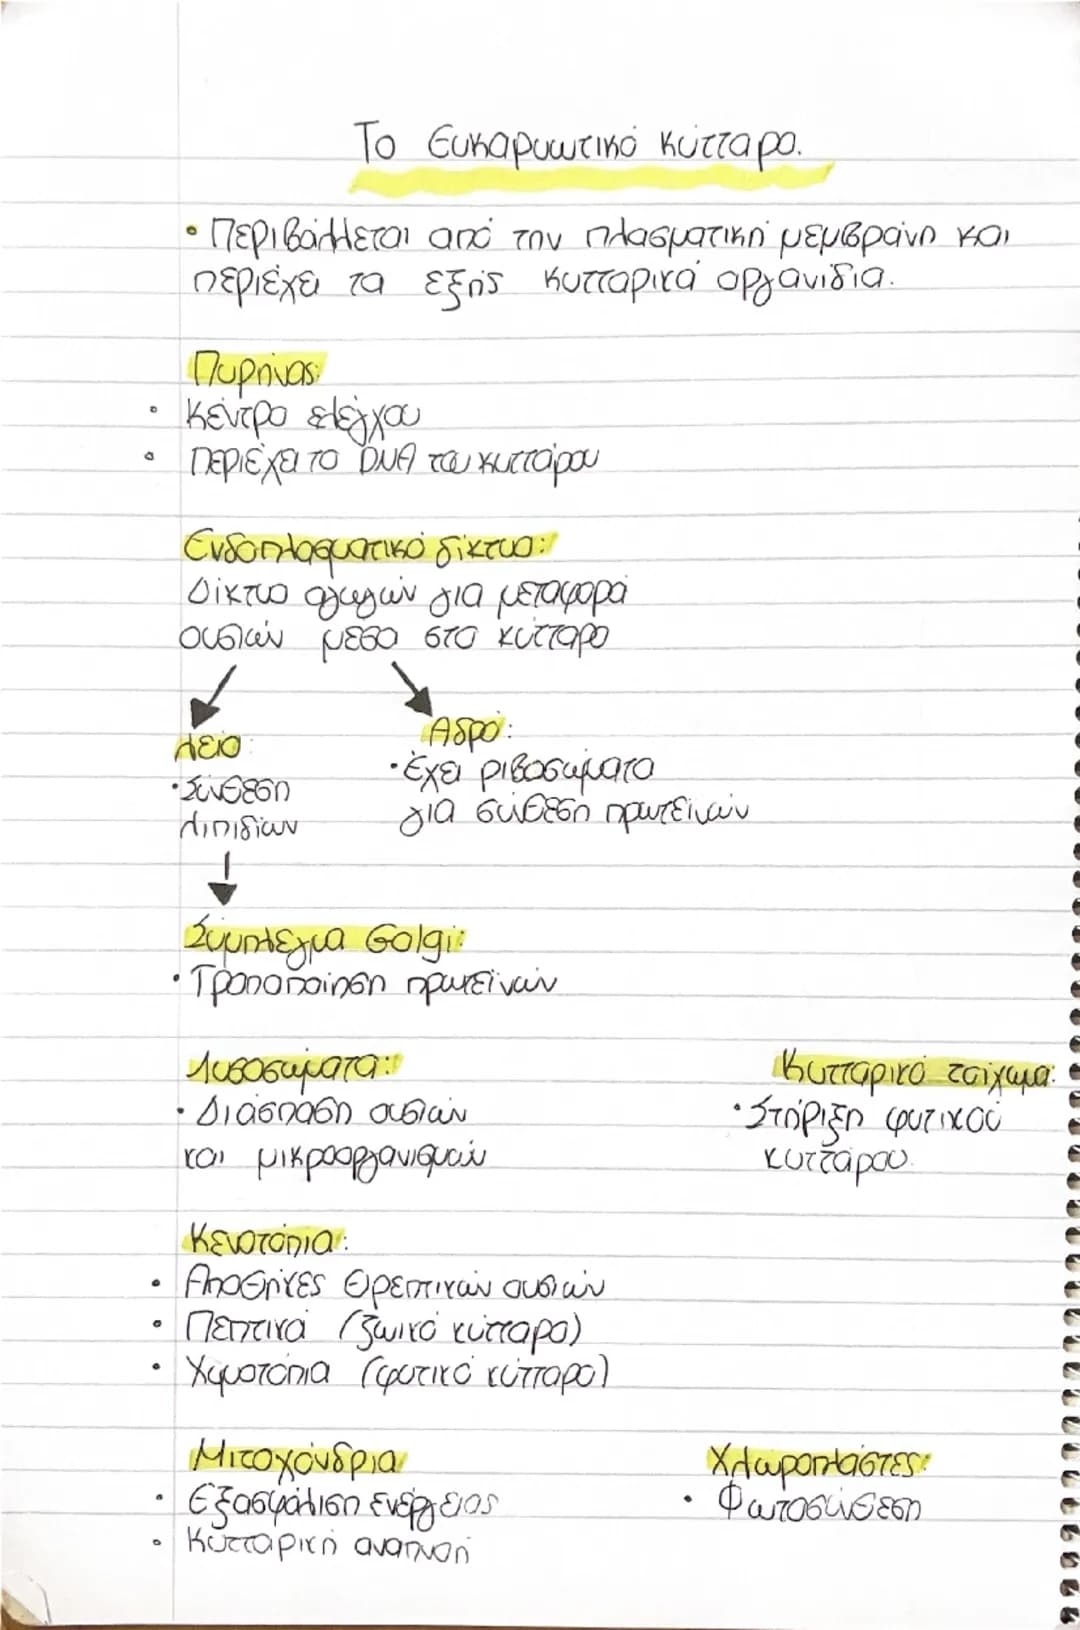 Το Ευκαρυωτικό κύτταρο.
• Περιβάλλεται από την πλασματική μεμβράνη και
περιέχει τα εξής κυτταρικά οργανίδια.
Πυρήνας:
• Κέντρο ελέγχου
• Περιέχει το DNA του κυττάρου
Ενδοπλασματικό δίκτυο:
Δίκτυο αγωγών για μεταφορά
ουσιών μέσα στο κύτταρο
Λείο:
• Σύνθεση
λιπιδίων
Αδρό:
• Έχει ριβοσώματα
για σύνθεση πρωτεϊνών
Σύμπλεγμα Golgi:
• Τροποποίηση πρωτεϊνών
Λυσοσώματα:
• Διάσπαση ουσιών
και μικροοργανισμών
Κυτταρικό τοίχωμα:
• Στήριξη φυτικού
κυττάρου.
Κενοτόπια:
• Αποθήκες θρεπτικών ουσιών
• Πεπτικά (ζωικό κύτταρο)
• Χυμοτόπια (φυτικό κύτταρο)
Μιτοχόνδρια
• Εξασφάλιση ενέργειας
• Κυτταρική αναπνοή
Χλωροπλάστες:
• Φωτοσύνθεση